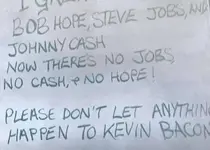 BOB HOPE, STEVE JOBS, AND
JOHNNY CASH
NOW THERE'S NO JOBS,
NO CASH, + NO HOPE!
PLEASE DON'T LET ANYTHING
HAPPEN TO KEVIN BACON